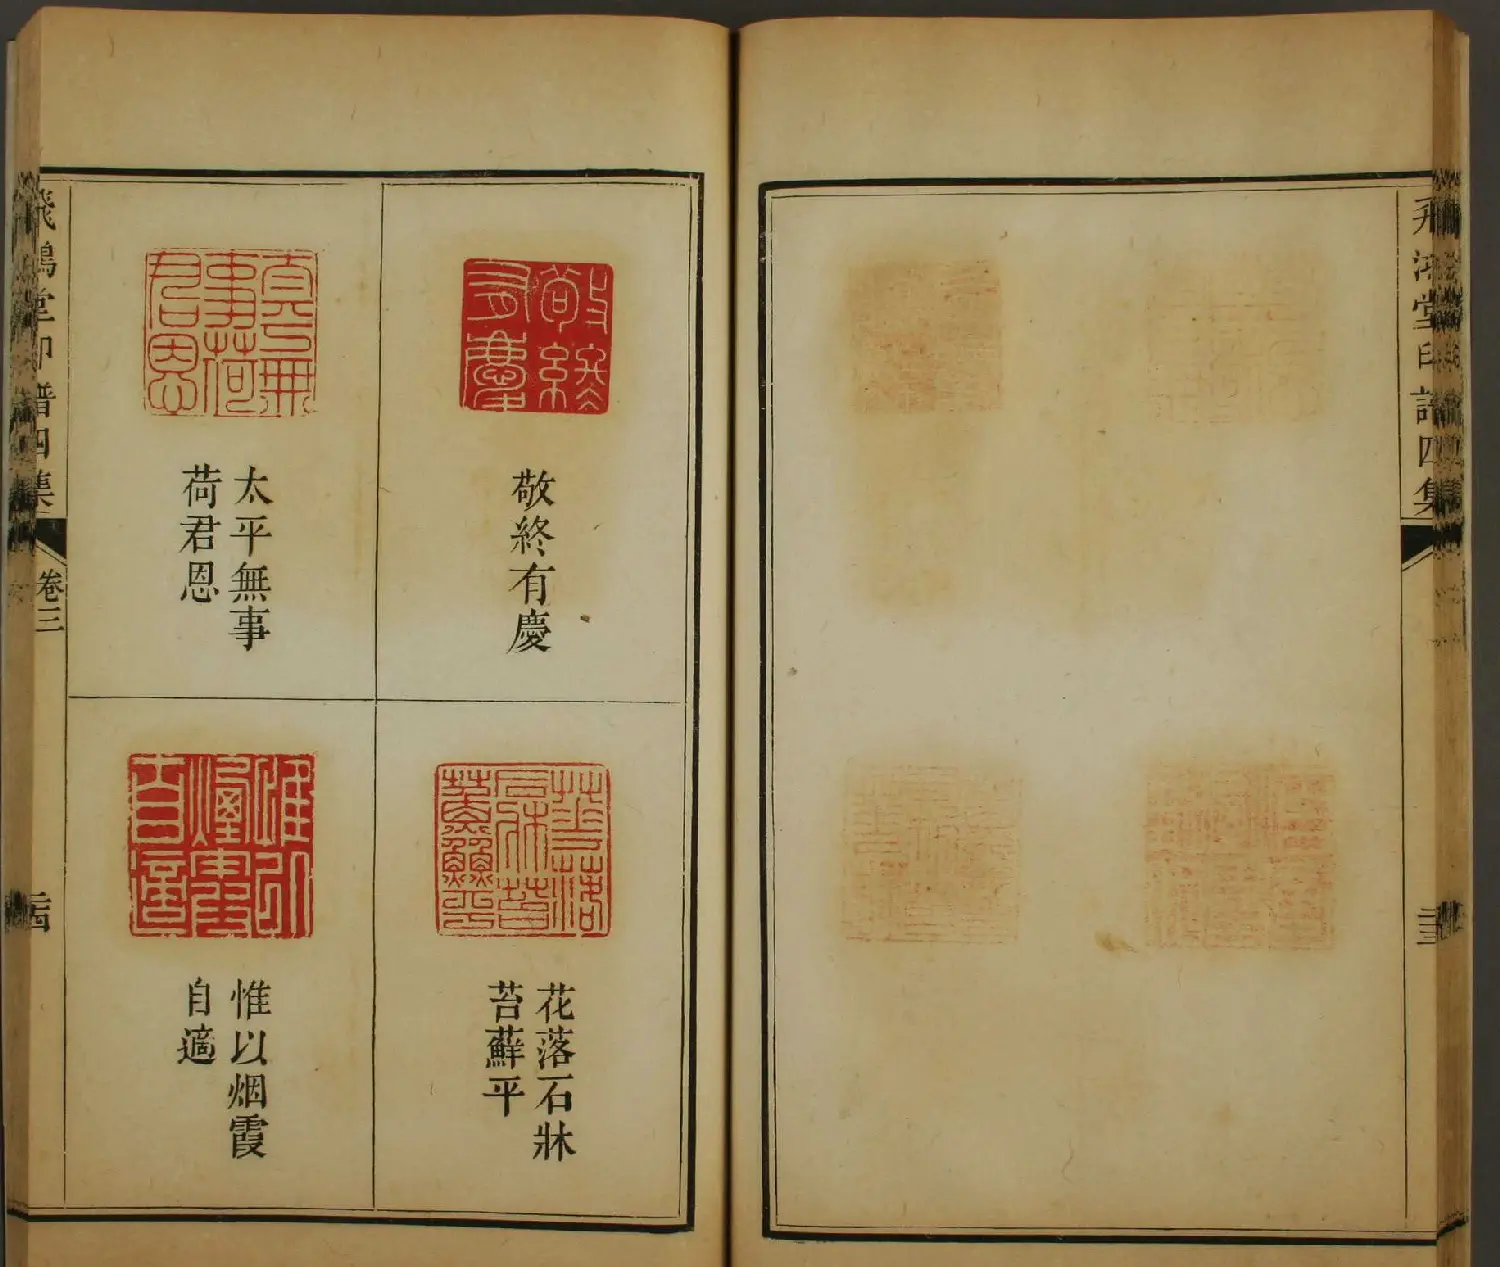 飛鴻堂印譜四集
三
敬終有慶
太平無事
荷君恩
花落石牀
苔蘚平
惟以烟霞
自適
飛鴻堂印譜四集
卷三